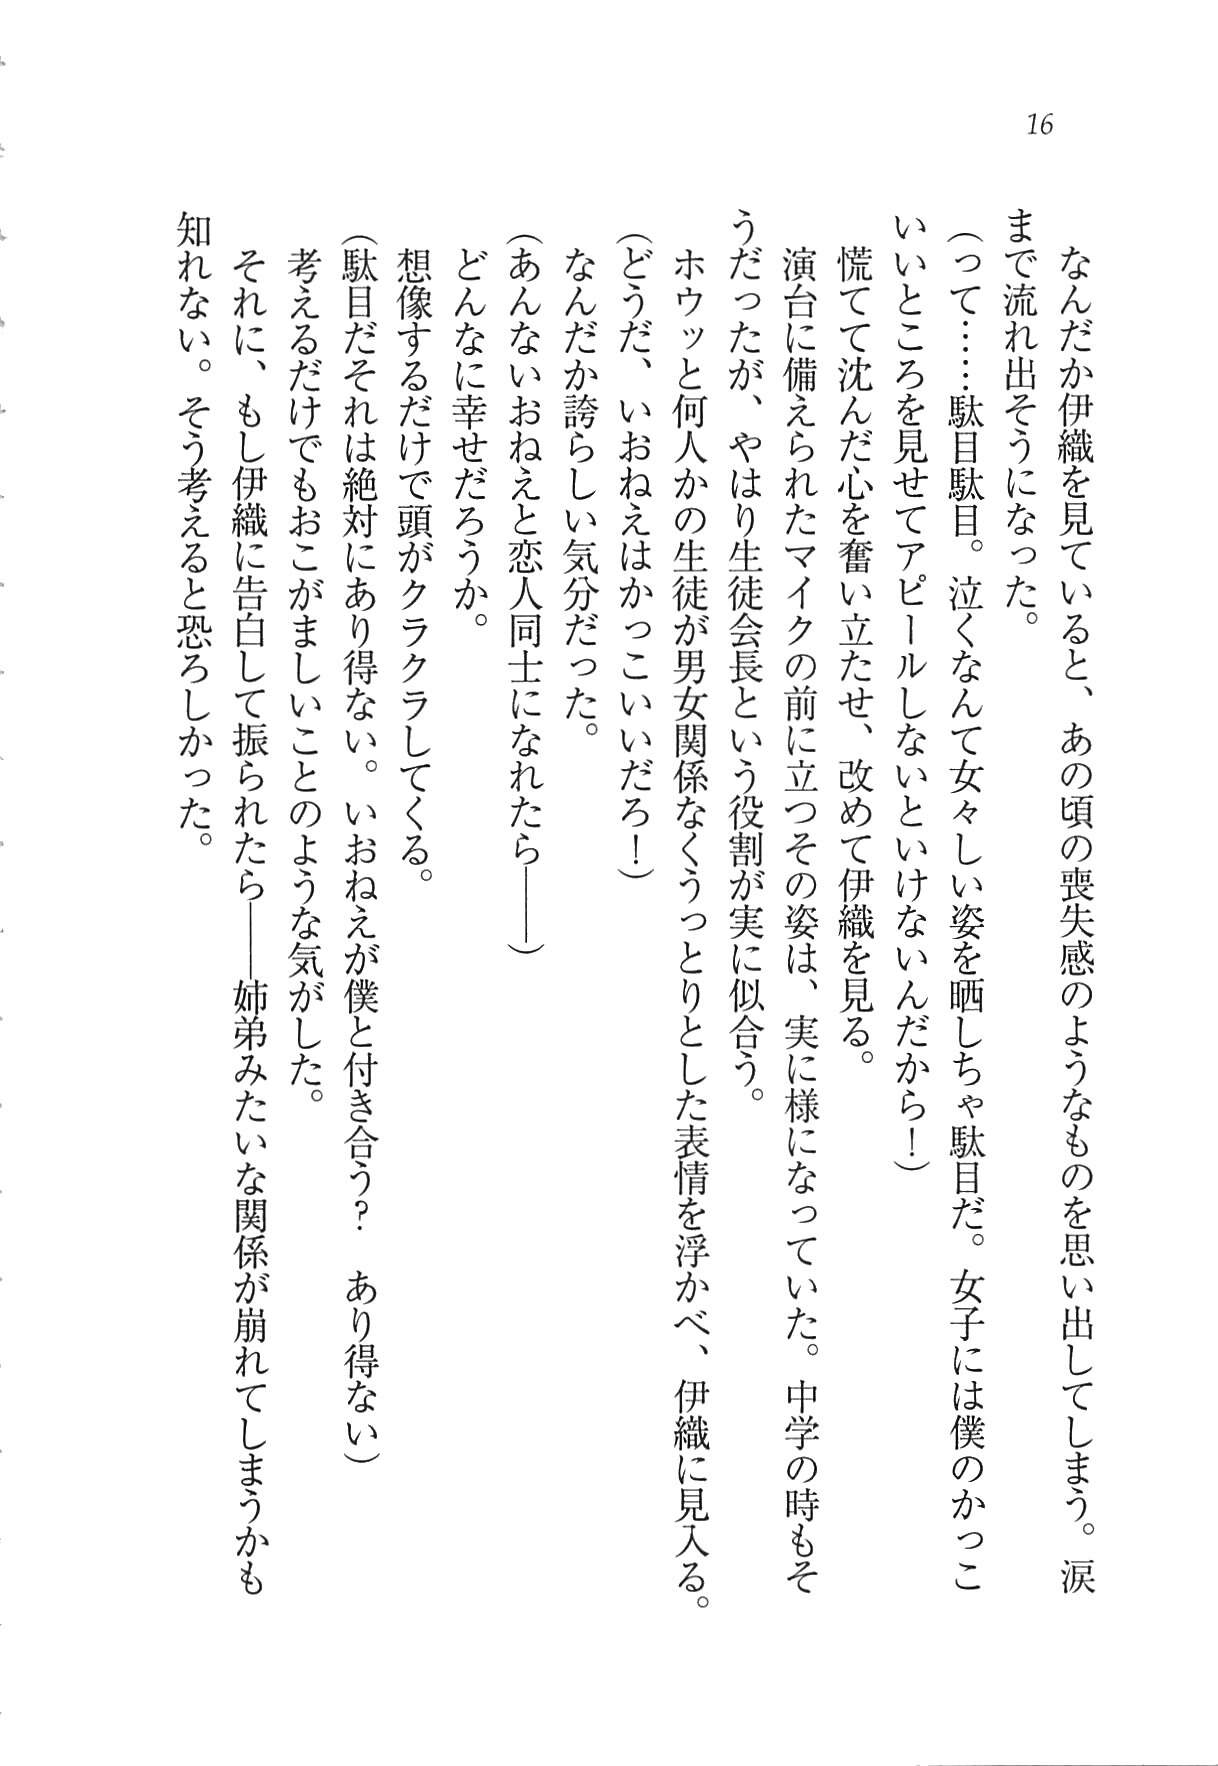 16
なんだか伊織を見ていると、あの頃の喪失感のようなものを思い出してしまう。涙
まで流れ出そうになった。
（って……駄目駄目。泣くなんて女々しい姿を晒しちゃ駄目だ。女子には僕のかっこ
いいところを見せてアピールしないといけないんだから！）
慌てて沈んだ心を奮い立たせ、改めて伊織を見る。
演台に備えられたマイクの前に立つその姿は、実に様になっていた。中学の時もそ
うだったが、やはり生徒会長という役割が実に似合う。
ホウッと何人かの生徒が男女関係なくうっとりとした表情を浮かべ、伊織に見入る。
（どうだ、いおねえはかっこいいだろ！）
なんだか誇らしい気分だった。
（あんないおねえと恋人同士になれたら――）
どんなに幸せだろうか。
想像するだけで頭がクラクラしてくる。
（駄目だそれは絶対にあり得ない。いおねえが僕と付き合う？　あり得ない）
考えるだけでもおこがましいことのような気がした。
それに、もし伊織に告白して振られたら――姉弟みたいな関係が崩れてしまうかも
知れない。そう考えると恐ろしかった。